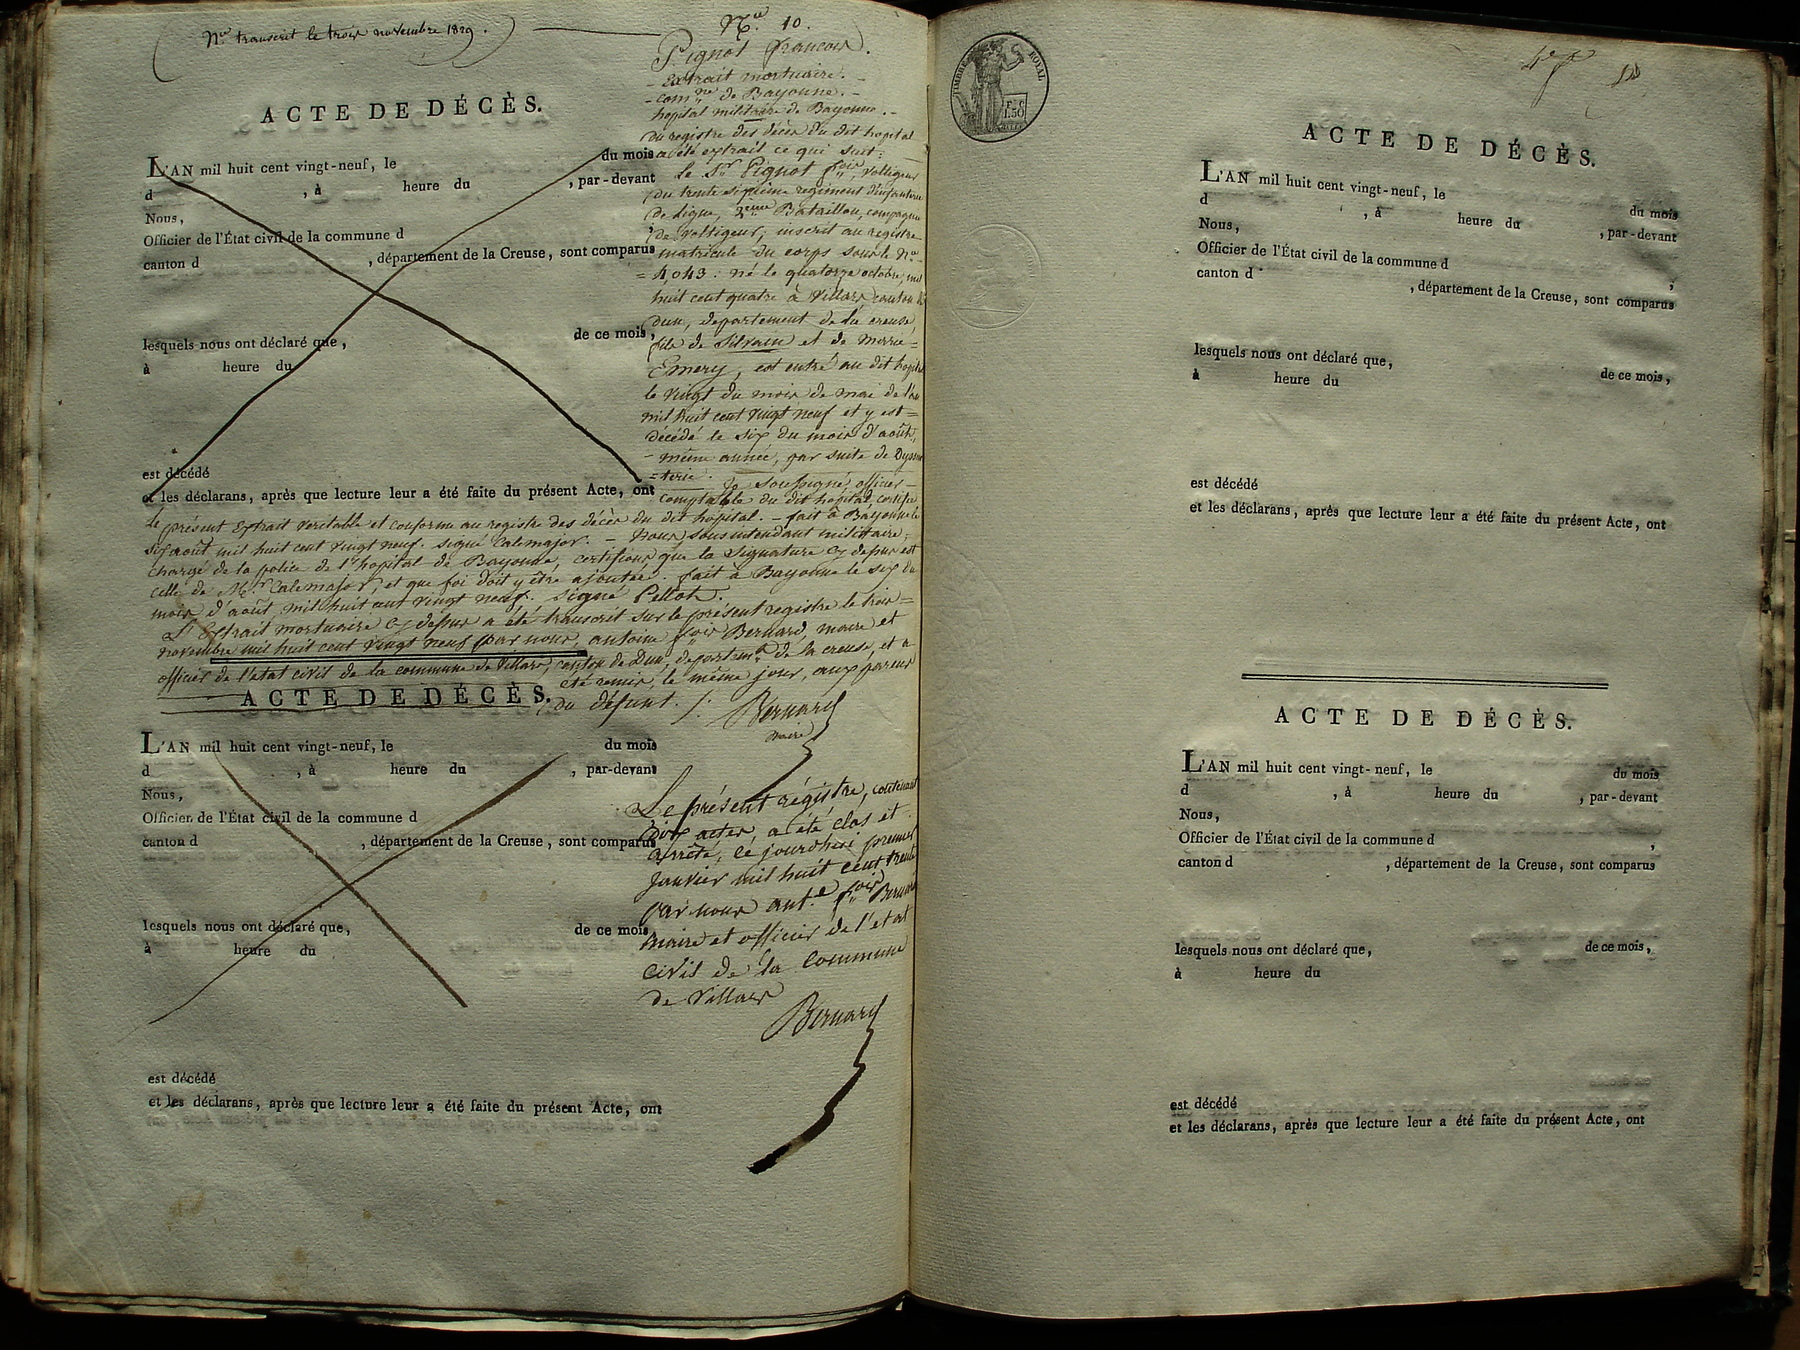 Nta transcrit le trois novembre 1829.
Nº. 10.
Pignot françois.
- Extrait mortuaire. -
- comne de Bayonne. -
hopital militaire de Bayonne. -
du registre des décès du dit hopital
a été extrait ce qui suit:
Le Sr Pignot fçois, voltigeur
du trente sixième regiment d'infanterie
de ligne, 2ème Bataillon, compagnie
de voltigeur; inscrit au registre
matricule du corps sous le No
= 4,043: né le quatorze octobre, mil
huit cent quatre à Villars, canton de
dun, departement de la creuse,
fils de Silvain et de Marie =
Emery, est entré au dit hopital
le vingt du mois de mai de l'an
mil huit cent vingt neuf et y est =
décédé le six du mois d'août,
- même année, par suite de Dyssen
= terie. Je soussigné, officier -
comptable du dit hopital, certifie
le présent Extrait veritable et conforme au registre des décès du dit hopital. - fait à Bayonne le
six août mil huit cent vingt neuf. signé Calemajor. - Nous sous intendant militaire,
chargé de la police de l'hopital de Bayonne, certifions que la Signature cy dessus est
celle de Mr. Calemajor, et que foi doit y être ajoutée. fait à Bayonne le six du
mois d'août mil huit cent vingt neuf. signé Pellot.
L'Extrait mortuaire cy dessus a été transcrit sur le présent registre le trois =
novembre mil huit cent vingt neuf par nous, antoine fçois Bernard, maire et
officier de l'etat civil de la commune de Villars, canton de Dun, departemt de la creuse, et a
été remis, le même jour, aux parens
du défunt. /:
Bernard
Maire
ACTE DE DÉCÈS.
L'AN mil huit cent vingt-neuf, le du mois
d , à heure du , par-devant
Nous,
Officier de l'État civil de la commune d ,
canton d , département de la Creuse, sont comparus
lesquels nous ont déclaré que, de ce mois,
à heure du
est décédé
et les déclarans, après que lecture leur a été faite du présent Acte, ont
ACTE DE DÉCÈS.
L'AN mil huit cent vingt-neuf, le du mois
d , à heure du , par-devant
Nous,
Officier de l'État civil de la commune d
canton d , département de la Creuse, sont comparus
lesquels nous ont déclaré que, de ce mois,
à heure du
est décédé
et les déclarans, après que lecture leur a été faite du présent Acte, ont
Le présent régistre, contenant
dix actes, a été clos et
arrêté, ce jourd'hui premier
Janvier mil huit cent trente
par nous ant.e fçois Bernard
maire et officier de l'état
civil de la commune
de Villars
Bernard
TIMBRE ROYAL
ACTE DE DÉCÈS.
L'AN mil huit cent vingt-neuf, le du mois
d , à heure du , par-devant
Nous,
Officier de l'État civil de la commune d ,
canton d , département de la Creuse, sont comparus
lesquels nous ont déclaré que, de ce mois,
à heure du
est décédé
et les déclarans, après que lecture leur a été faite du présent Acte, ont
ACTE DE DÉCÈS.
L'AN mil huit cent vingt-neuf, le du mois
d , à heure du , par-devant
Nous,
Officier de l'État civil de la commune d ,
canton d , département de la Creuse, sont comparus
lesquels nous ont déclaré que, de ce mois,
à heure du
est décédé
et les déclarans, après que lecture leur a été faite du présent Acte, ont